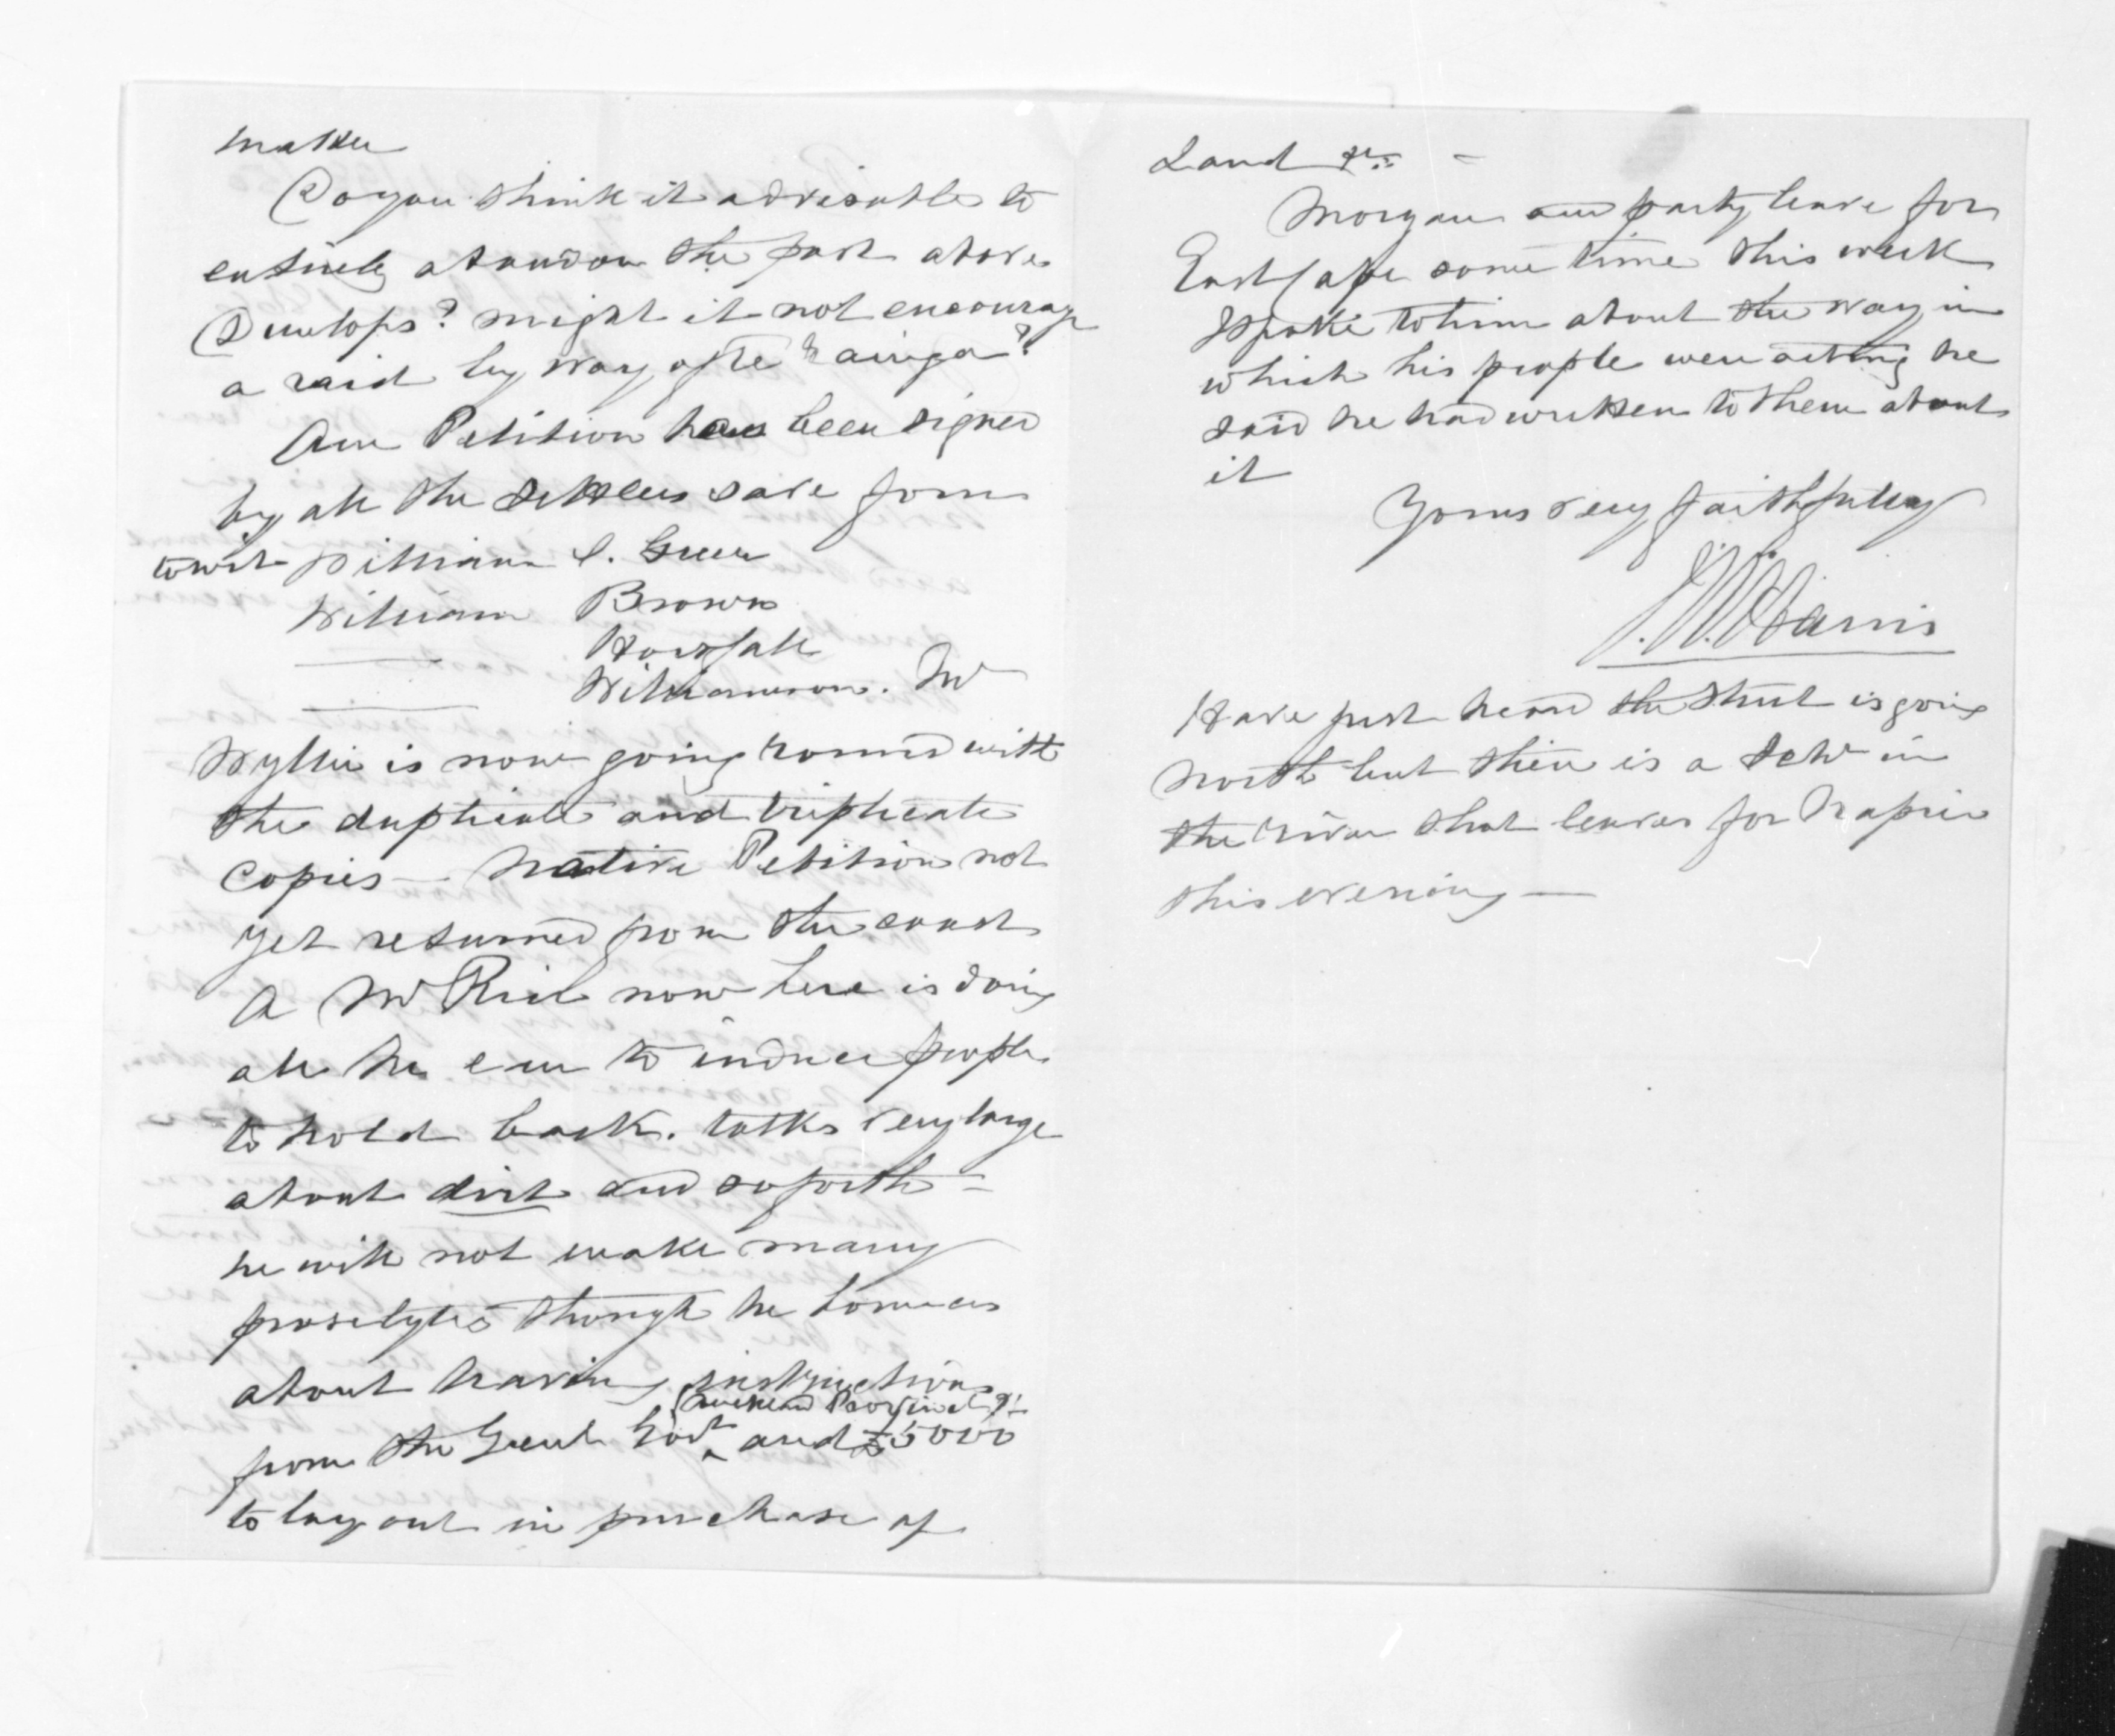 matter
Do you think it advisable to
entirely abandon the post above
Dunlops? might it not encourage
a raid by way of Te Rainga?
Our Petition has been signed
by all the settlers save four
to wit William S. Greene
William Brown
Horsfall
Williamson. Mr
Wyllie is now going round with
the duplicate and triplicate
copies — Native Petition not
yet returned from the coast
A Mr Rich now here is doing
all he can to induce people
to hold back. talks very large
about dirt and so forth —
he will not make many
proselytes though he
about having instructions
Auckland Provincial
from the Genl Govt and £5000
to lay out in purchase of
Land &c —
Morgan and party leave for
East Cape some time this week
I spoke to him about the way in
which his people were acting he
said he had written to them about
it
Yours very faithfully
J. W. Harris
Have just heard the Sturt is going
North but there is a Schr in
the river that leaves for Napier
this evening —